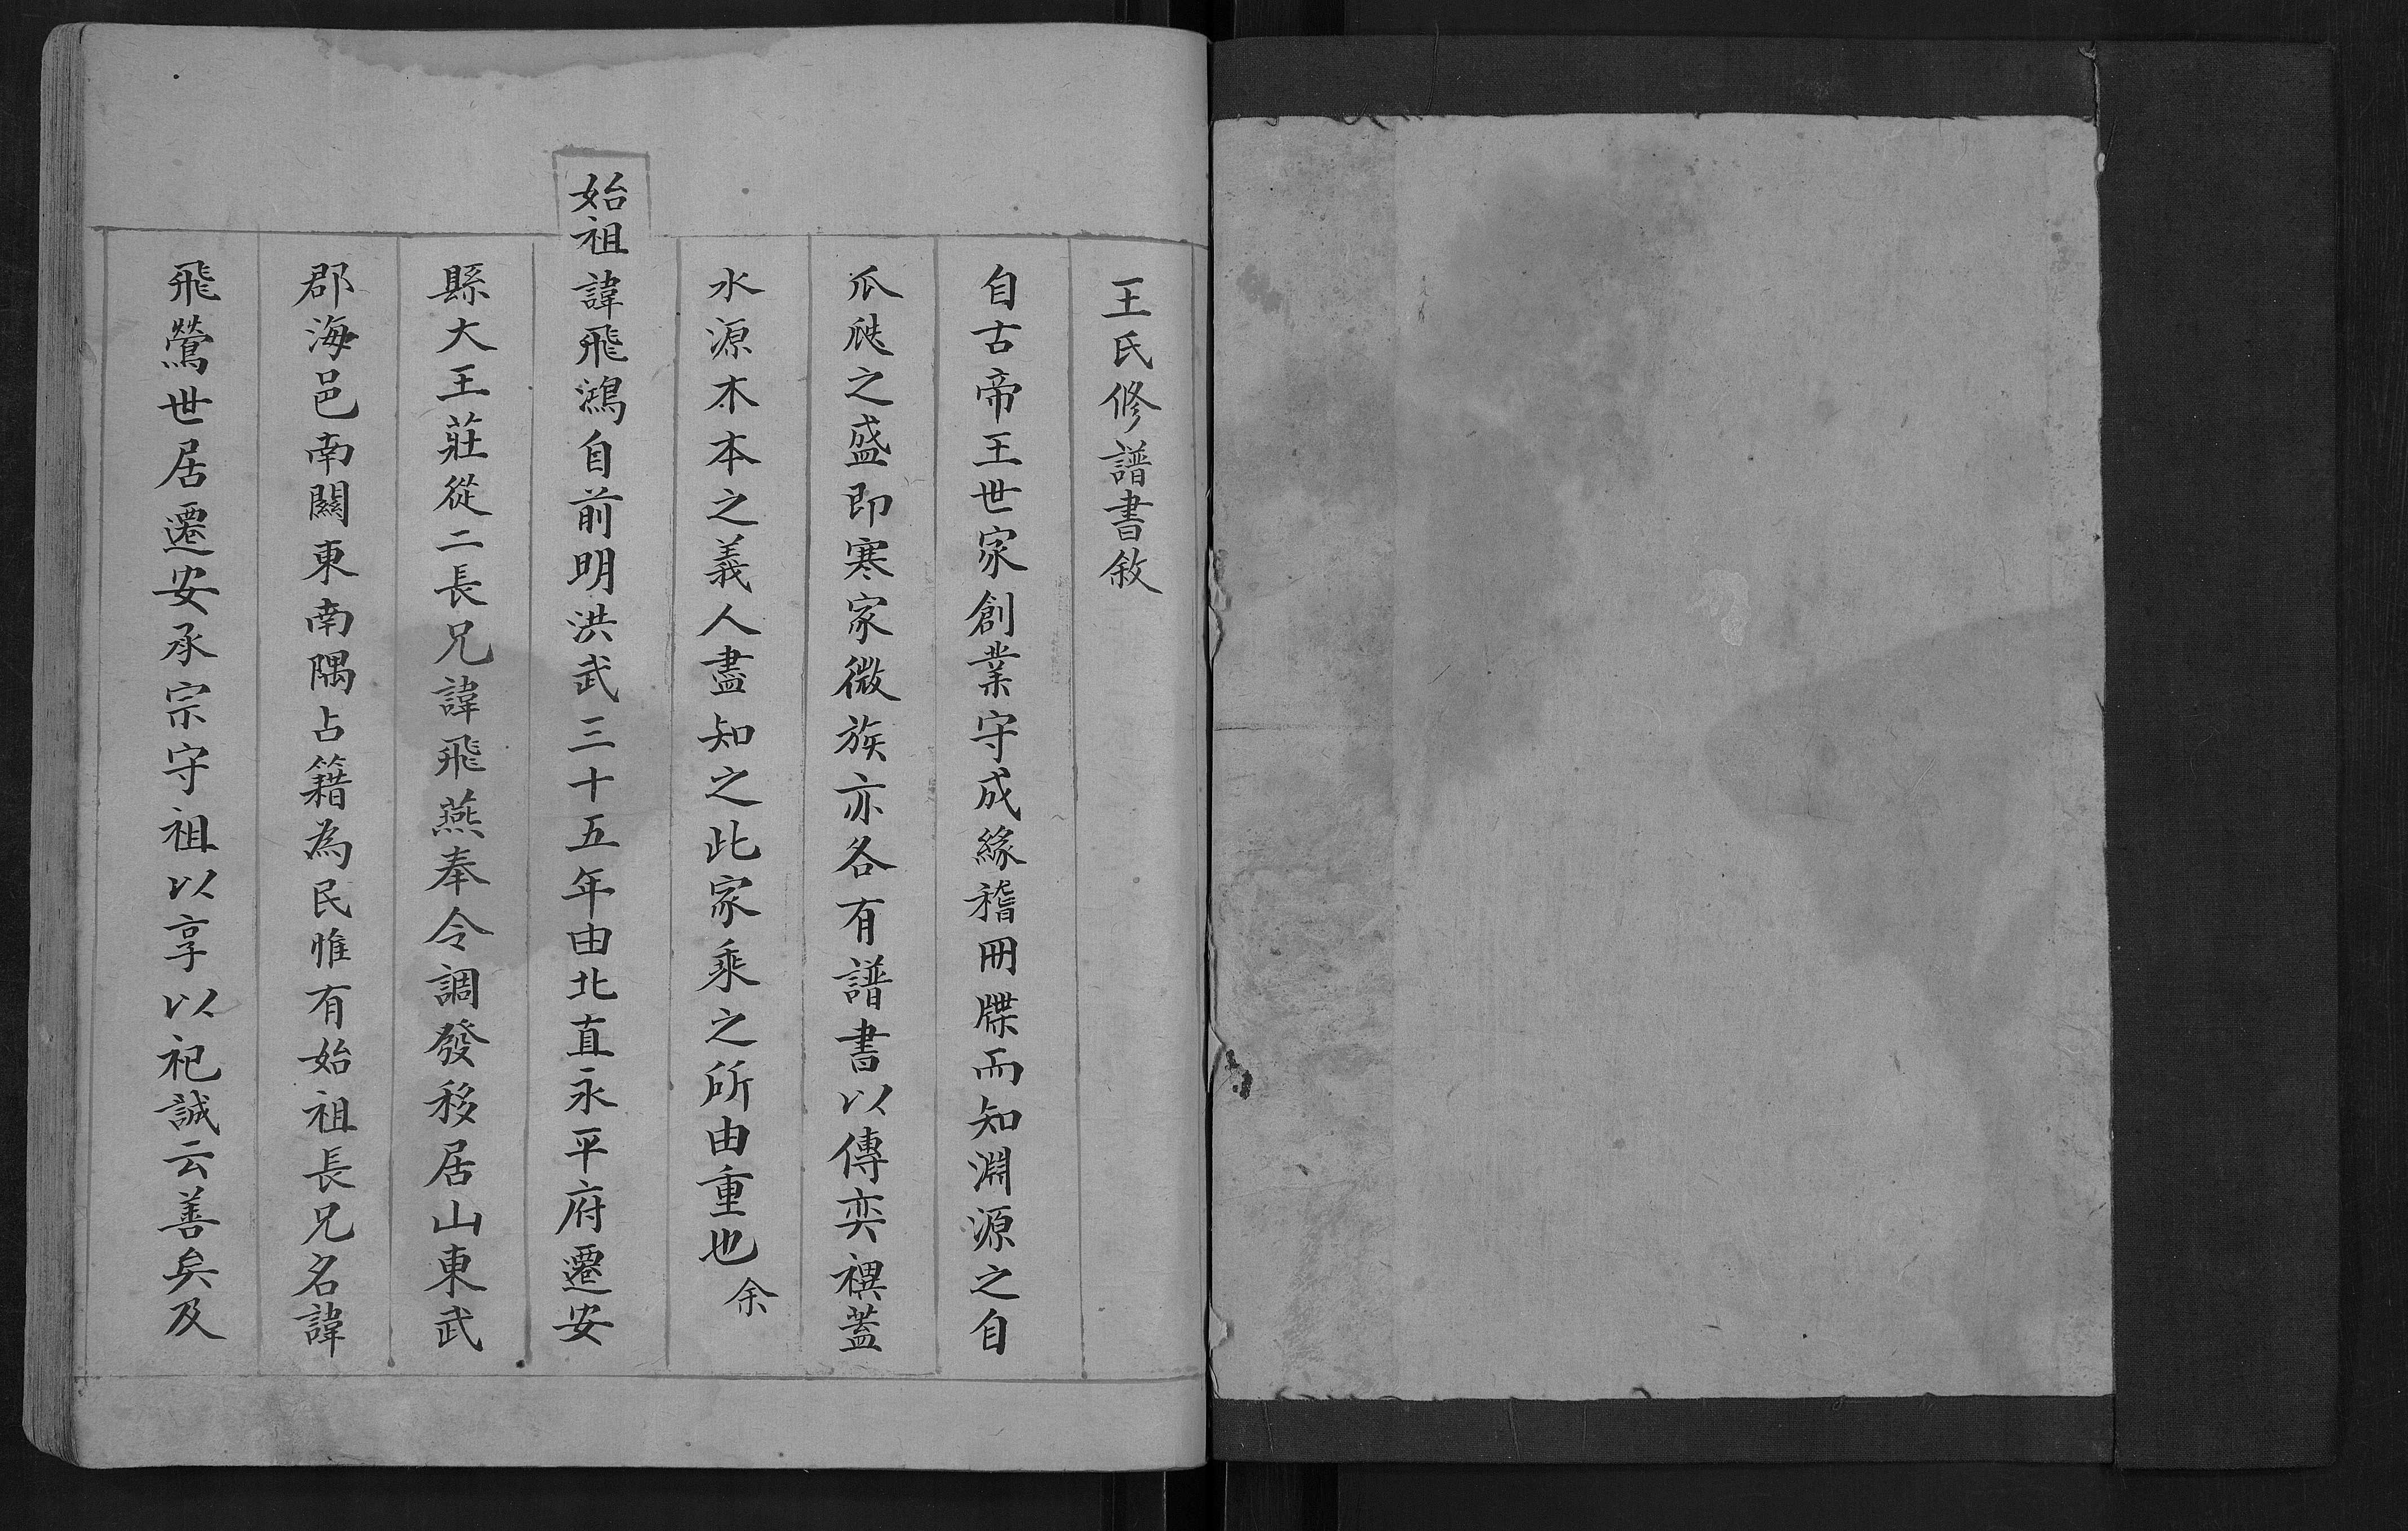 王氏修譜書敘
自古帝王世家創業守成緣稽冊牒而知淵源之自
瓜瓞之盛即寒家微族亦各有譜書以傳奕禩蓋
水源木本之義人盡知之此家乘之所由重也余
始祖諱飛鴻自前明洪武三十五年由北直永平府遷安
縣大王莊從二長兄諱飛燕奉令調發移居山東武
郡海邑南關東南隅占籍為民惟有始祖長兄名諱
飛鶯世居遷安承宗守祖以享以祀誠云善矣及